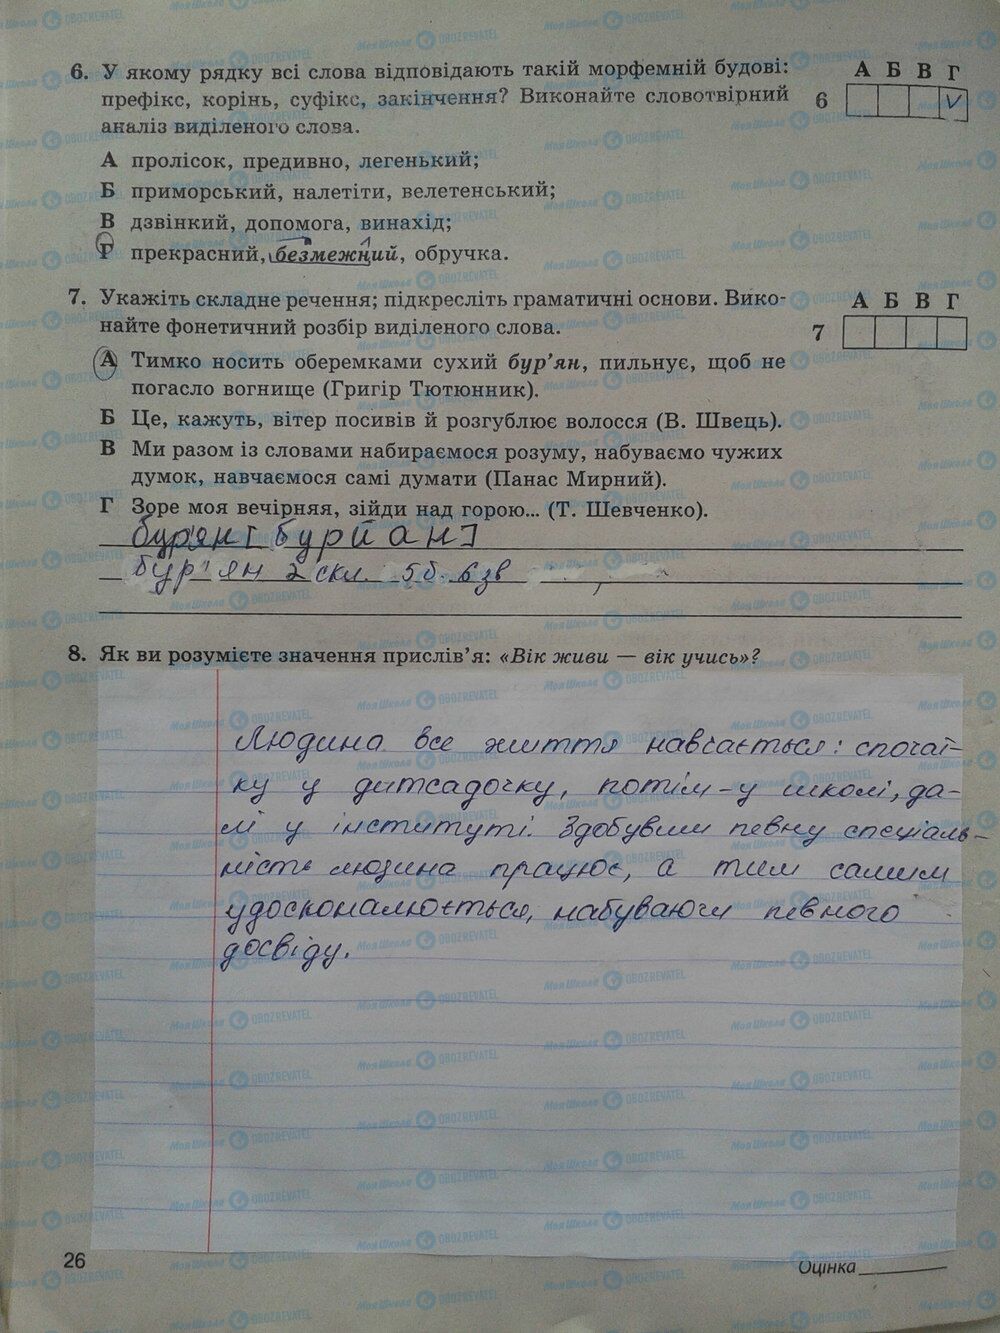 6. У якому рядку всі слова відповідають такій морфемній будові:
префікс, корінь, суфікс, закінчення? Виконайте словотвірний
аналіз виділеного слова.
А Б В Г
6 V
А пролісок, предивно, легенький;
Б приморський, налетіти, велетенський;
В дзвінкий, допомога, винахід;
Г прекрасний, безмежний, обручка.
7. Укажіть складне речення; підкресліть граматичні основи. Вико-
найте фонетичний розбір виділеного слова.
А Б В Г
7
А Тимко носить оберемками сухий бур’ян, пильнує, щоб не
погасло вогнище (Григір Тютюнник).
Б Це, кажуть, вітер посивів й розгублює волосся (В. Швець).
В Ми разом із словами набираємося розуму, набуваємо чужих
думок, навчаємося самі думати (Панас Мирний).
Г Зоре моя вечірняя, зійди над горою... (Т. Шевченко).
бур'ян [бурйан]
бур'ян 2 скл. 5 б. 6 зв
8. Як ви розумієте значення прислів’я: «Вік живи — вік учись»?
Людина все життя навчається: спочат-
ку у дитсадочку, потім - у школі, да-
лі у інституті. Здобувши певну спеціаль-
ність людина працює, а тим самим
удосконалюється, набуваючи певного
досвіду.
26
Оцінка
МояШкола OBOZREVATEL